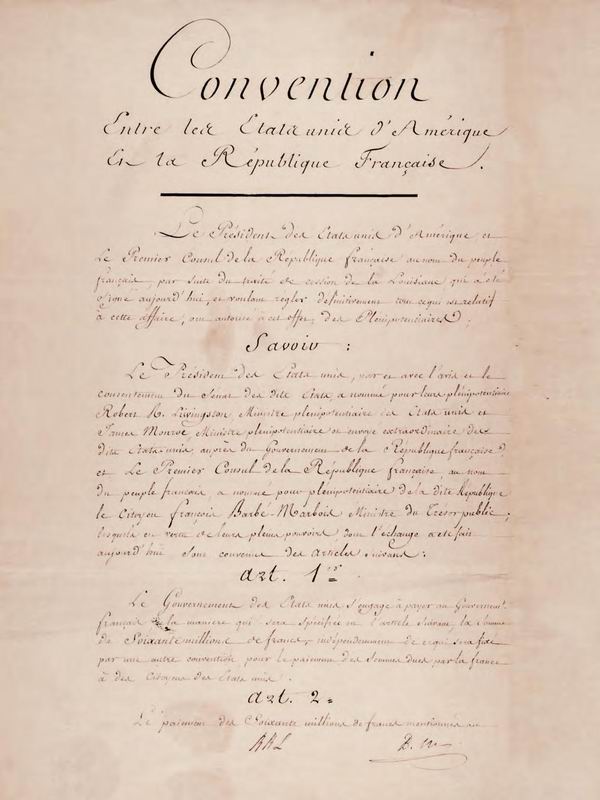 Convention
Entre les Etats unis d'Amérique
Et la République Française.
Le Président des Etats unis d'Amérique et
Le Premier Consul de la République française au nom du peuple
français, par suite du traité de cession de la Louisiane qui a été
signé aujourd'hui, et voulant regler définitivement tout ce qui est relatif
à cette affaire, ont autorisé à cet effet, des Plénipotentiaires ;
Savoir :
Le Président des Etats unis, par et avec l'avis et le
consentement du Senat des dits Etats, a nommé pour leurs plénipotentiaires
Robert R. Livingston Ministre plénipotentiaire des Etats unis et
James Monroe Ministre plénipotentiaire et envoyé extraordinaire des
dits Etats-unis auprès du Gouvernement de la République française ;
et Le Premier Consul de la République française, au nom
du peuple français, a nommé pour plénipotentiaire de la dite République
le Citoyen françois Barbé-Marbois Ministre du Trésor public ;
lesquels en vertu de leurs pleins pouvoirs dont l'échange a été fait
aujourd'hui sont convenus des articles suivans :
art. 1er
Le Gouvernement des Etats unis s'engage à payer au Gouvernemt.
français de la manière qui sera spécifiée en l'article suivant, la somme
de Soixante millions de francs, indépendamment de ce qui sera fixé
par une autre convention, pour le paiement des sommes dues par la france
à des citoyens des Etats unis.
art. 2=
Le paiement des Soixante millions de francs mentionnés au
RRL B. M